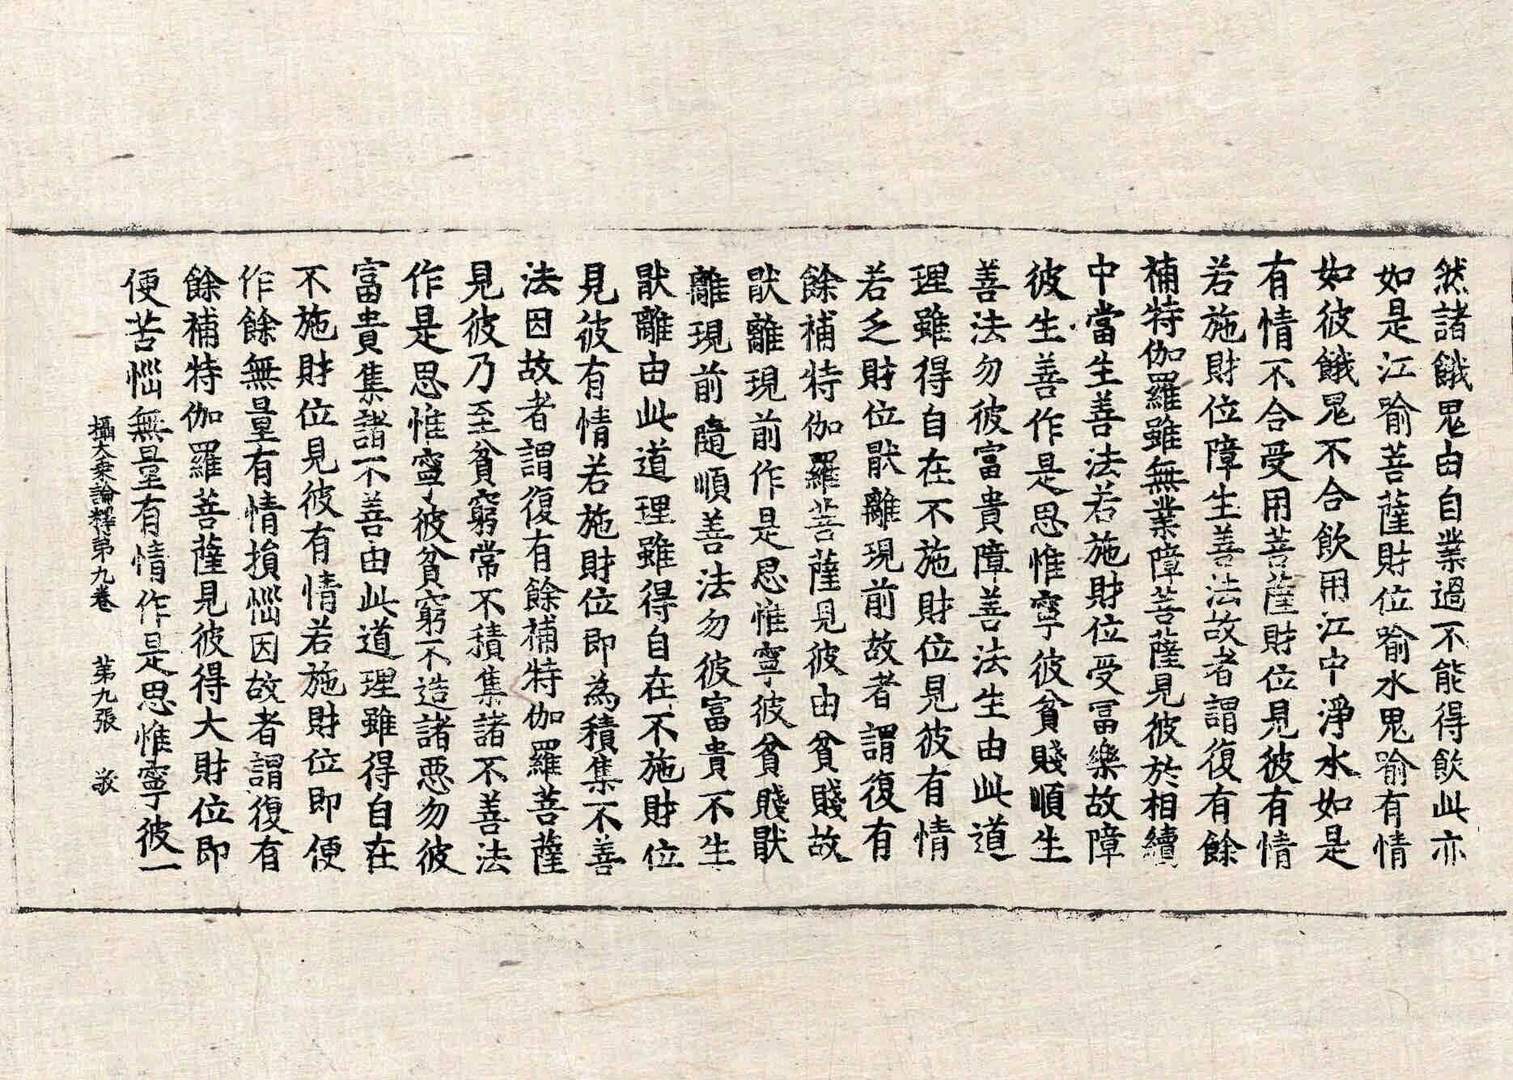 然諸餓鬼由自業過不能得飲此亦
如是江喻菩薩財位喻水鬼喻有情
如彼餓鬼不合飲用江中淨水如是
有情不合受用菩薩財位見彼有情
若施財位障生善法故者謂復有餘
補特伽羅雖無業障菩薩見彼於相續
中當生善法若施財位受冨樂故障
彼生善作是思惟寧彼貧賤順生
善法勿彼富貴障善法生由此道
理雖得自在不施財位見彼有情
若乏財位猒離現前故者謂復有
餘補特伽羅菩薩見彼由貧賤故
猒離現前作是思惟寧彼貧賤猒
離現前隨順善法勿彼富貴不生
猒離由此道理雖得自在不施財位
見彼有情若施財位即為積集不善
法因故者謂復有餘補特伽羅菩薩
見彼乃至貧窮常不積集諸不善法
作是思惟寧彼貧窮不造諸惡勿彼
富貴集諸不善由此道理雖得自在
不施財位見彼有情若施財位即便
作餘無量有情損惱因故者謂復有
餘補特伽羅菩薩見彼得大財位即
便苦惱無量有情作是思惟寧彼一
攝大乘論釋第九卷 第九張 敬